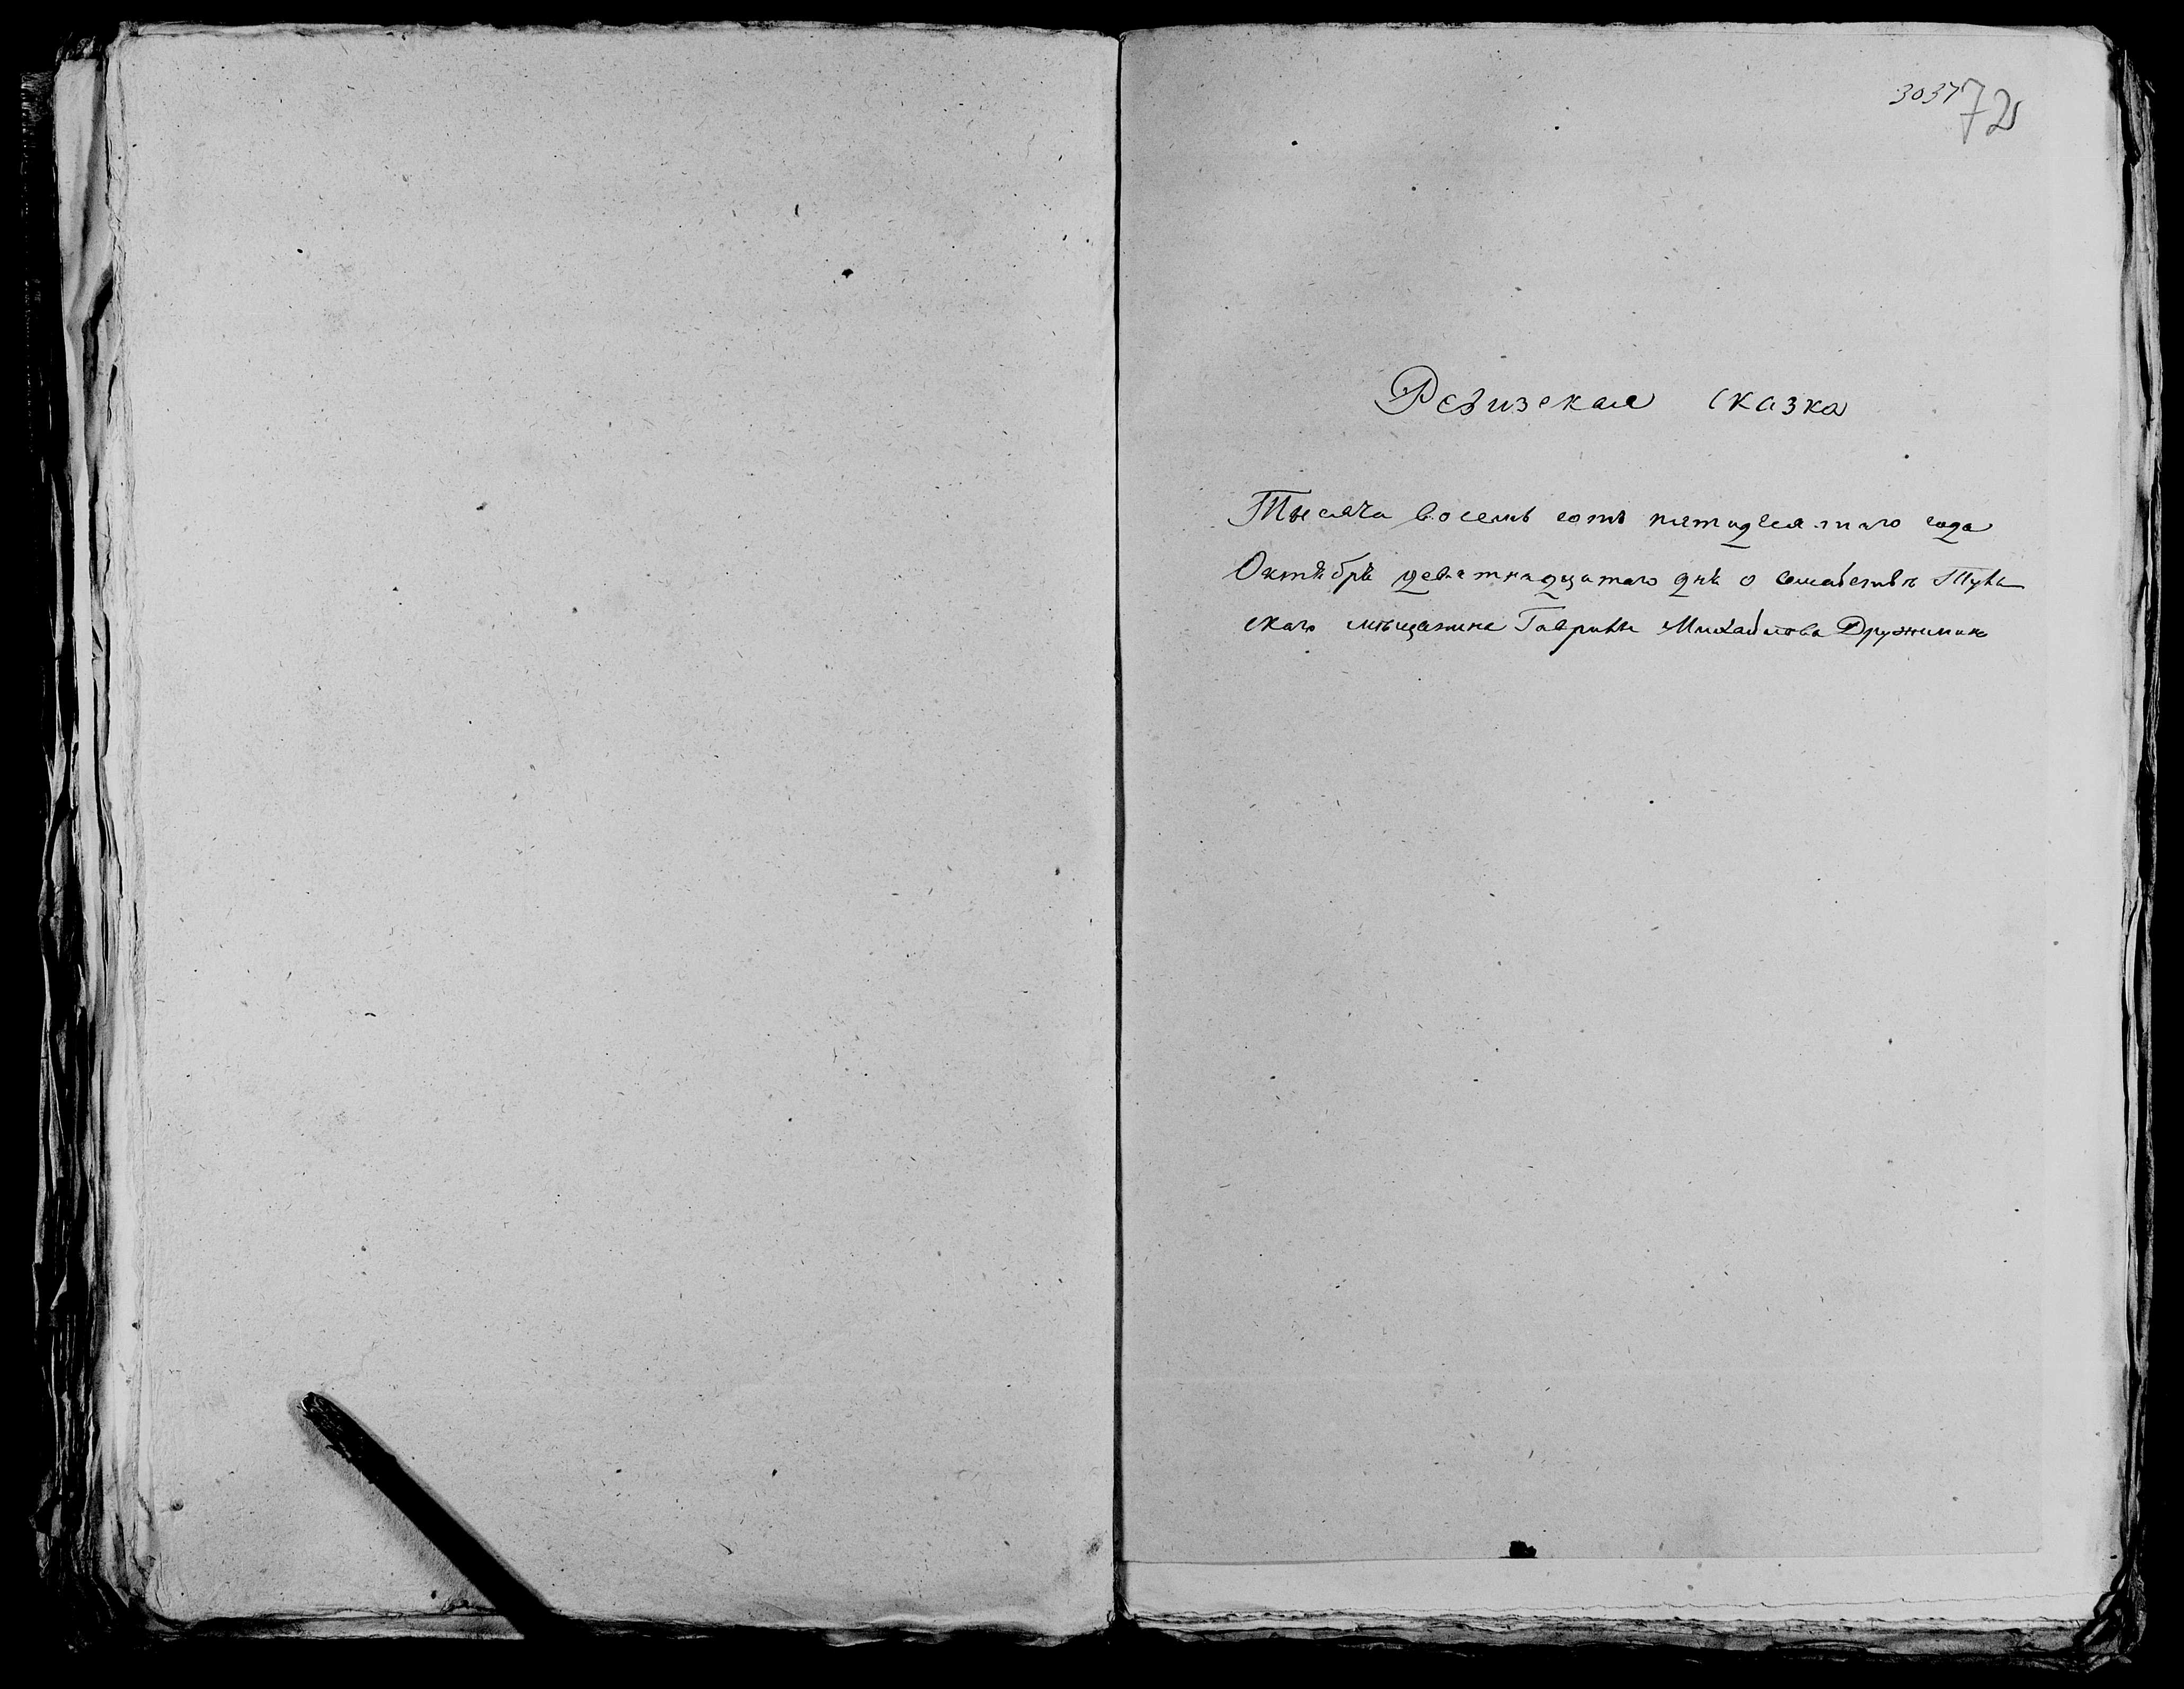 3037 72
Ревизская сказка
Тысяча восемь сотъ пятидесятаго года
Октября девятнадцатаго дня о семействѣ Туль
скаго мѣщанина Гаврилы Михайлова Дружинина